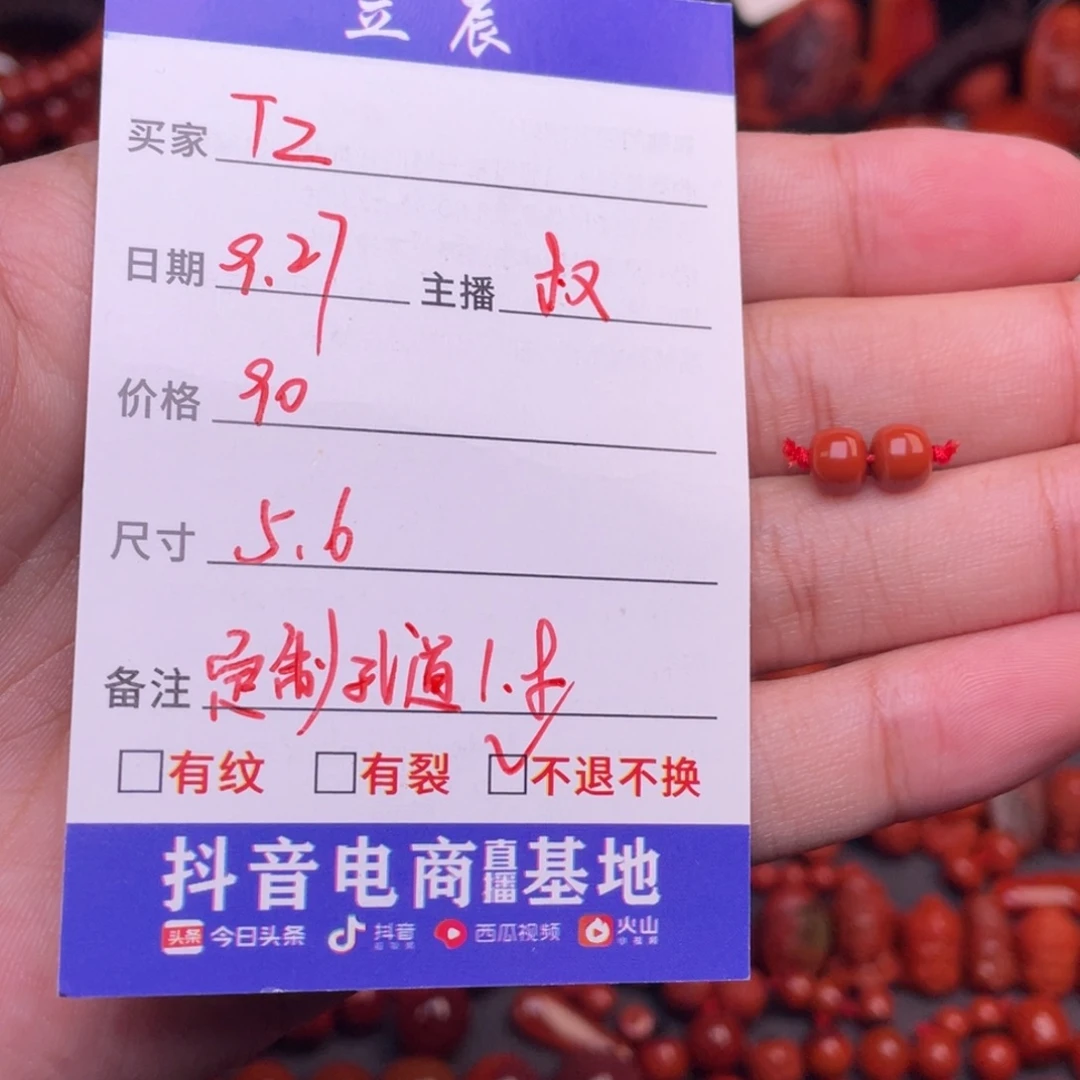 立辰
买家 TZ
日期 9.27 主播 权
价格 90
尺寸 5.6
备注 定制孔道1.
有纹 有裂 不退不换
抖音电商直播基地
头条 今日头条 抖音 西瓜视频 火山